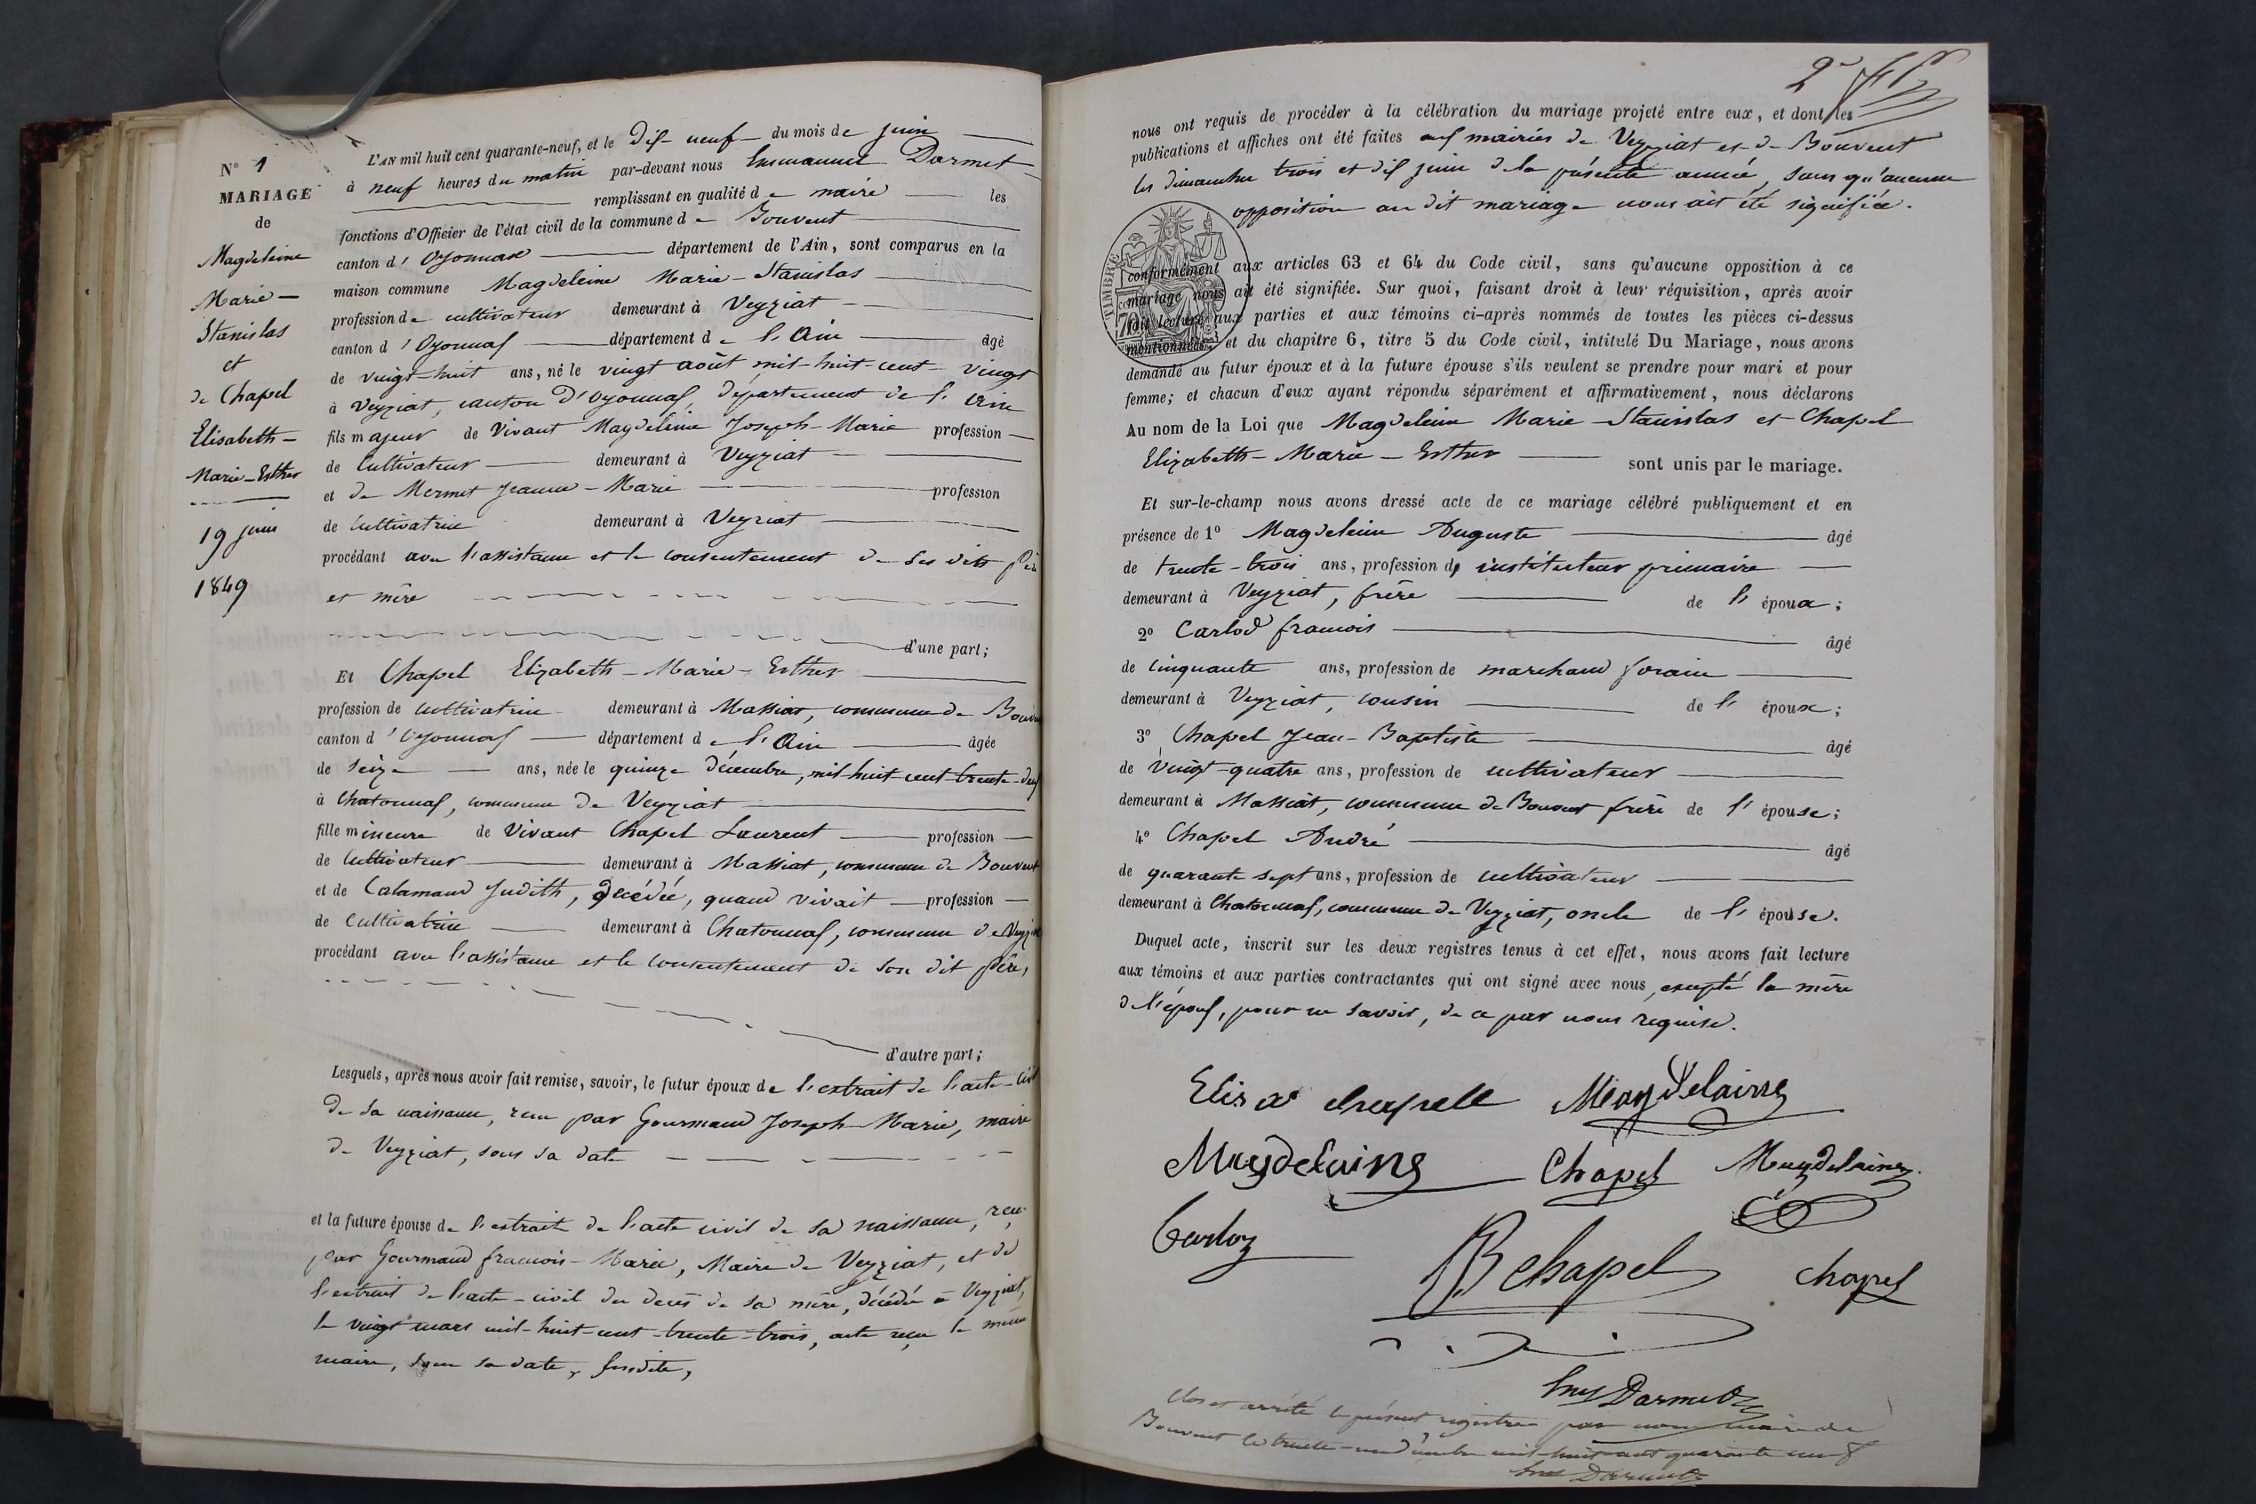 N° 1
MARIAGE
de
Magdeleine
Marie-
Stanislas
et
de Chapel
Elisabeth-
Marie-Esther
19 juin
1849
L'AN mil huit cent quarante-neuf, et le dix-neuf du mois de juin
à neuf heures du matin par-devant nous Emmanuel Darmet
remplissant en qualité de maire les
fonctions d'Officier de l'état civil de la commune de Bouvent
canton d'Oyonnax département de l'Ain, sont comparus en la
maison commune Magdeleine Marie-Stanislas
profession de cultivateur demeurant à Veyziat
canton d'Oyonnax département de l'Ain âgé
de vingt-huit ans, né le vingt août mil-huit-cent-vingt
à Veyziat, canton d'Oyonnax, département de l'Ain
fils majeur de Vivant Magdeleine Joseph-Marie profession
de cultivateur demeurant à Veyziat
et de Mermet Jeanne-Marie profession
de cultivatrice demeurant à Veyziat
procédant avec l'assistance et le consentement de ses dits père
et mère
d'une part;
Et Chapel Elizabeth-Marie-Esther
profession de cultivatrice demeurant à Massiat, commune de Bouvent
canton d'Oyonnax département de l'Ain âgée
de seize ans, née le quinze décembre, mil-huit-cent-trente-deux
à Chatonnax, commune de Veyziat
fille mineure de Vivant Chapel Laurent profession
de cultivateur demeurant à Massiat, commune de Bouvent
et de Calamand Judith, décédée, quand vivait profession
de cultivatrice demeurant à Chatonnax, commune de Veyziat
procédant avec l'assistance et le consentement de son dit père,
d'autre part;
Lesquels, après nous avoir fait remise, savoir, le futur époux de l'extrait de l'acte-civil
de sa naissance, reçu par Gourmand Joseph-Marie, maire
de Veyziat, sous sa date
et la future épouse de l'extrait de l'acte civil de sa naissance, reçu
par Gourmand francois-Marie, Maire de Veyziat, et de
l'extrait de l'acte-civil du décès de sa mère, décédée à Veyziat,
le vingt mars mil-huit-cent-trente-trois, acte reçu le même
maire, sous sa date, susdite,
2e
nous ont requis de procéder à la célébration du mariage projeté entre eux, et dont les
publications et affiches ont été faites aux mairies de Veyziat et de Bouvent
les dimanches trois et dix juin de la présente année, sans qu'aucune
opposition au dit mariage nous ait été signifiée.
TIMBRE
conformément aux articles 63 et 64 du Code civil, sans qu'aucune opposition à ce
mariage nous ait été signifiée. Sur quoi, faisant droit à leur réquisition, après avoir
fait lecture aux parties et aux témoins ci-après nommés de toutes les pièces ci-dessus
mentionnées, et du chapitre 6, titre 5 du Code civil, intitulé Du Mariage, nous avons
demandé au futur époux et à la future épouse s'ils veulent se prendre pour mari et pour
femme; et chacun d'eux ayant répondu séparément et affirmativement, nous déclarons
Au nom de la Loi que Magdeleine Marie-Stanislas et Chapel
Elizabeth-Marie-Esther sont unis par le mariage.
Et sur-le-champ nous avons dressé acte de ce mariage célébré publiquement et en
présence de 1° Magdeleine Auguste âgé
de trente-trois ans, profession d, instituteur primaire
demeurant à Veyziat, frère de l'époux;
2° Carlod francois âgé
de cinquante ans, profession de marchand forain
demeurant à Veyziat, cousin de l'époux;
3° Chapel Jean-Baptiste âgé
de vingt-quatre ans, profession de cultivateur
demeurant à Massiat, commune de Bouvent frère de l'épouse;
4° Chapel André âgé
de quarante sept ans, profession de cultivateur
demeurant à Chatonnax, commune de Veyziat, oncle de l'épouse.
Duquel acte, inscrit sur les deux registres tenus à cet effet, nous avons fait lecture
aux témoins et aux parties contractantes qui ont signé avec nous, excepté la mère
de l'époux, pour ne savoir, de ce par nous requise.
Elisa chapelle Magdelaine
Magdelaine Chapel Magdelaine
Carloz
JB chapel chapel
Em Darmet
Clos et arrêté le présent registre par nous maire de
Bouvent le trente-un décembre mil-huit-cent quarante neuf
Em Darmet